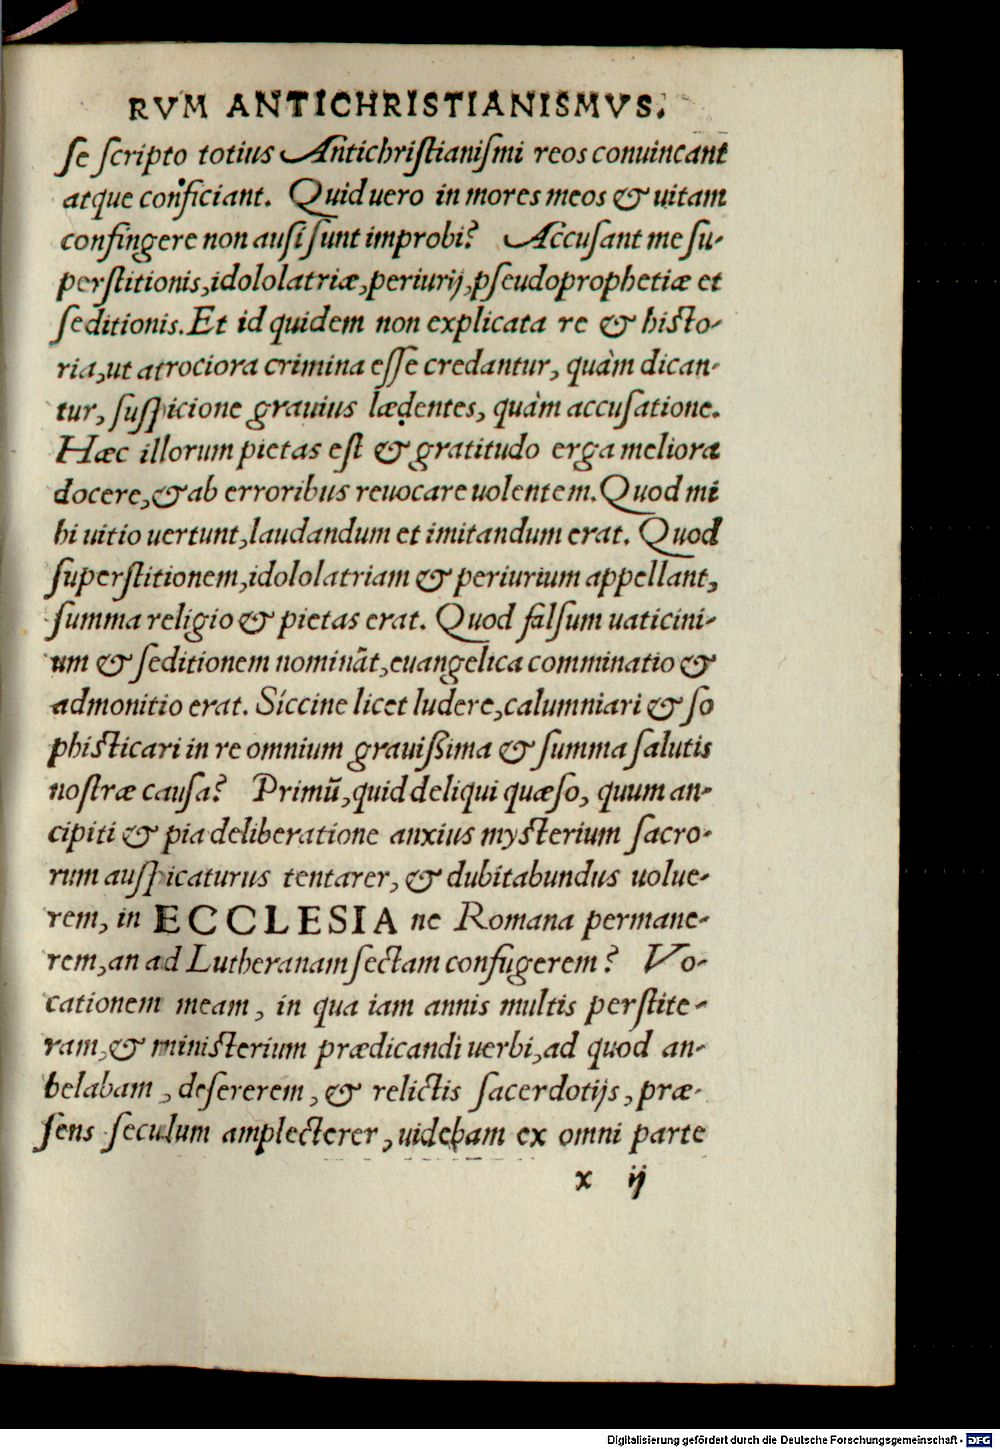 RVM ANTICHRISTIANISMVS.
ſe ſcripto totius Antichriſtianiſmi reos conuincant
atque conficiant. Quid uero in mores meos & uitam
confingere non auſi ſunt improbi? Accuſant me ſu-
perſtitionis, idololatriæ, periurij, pſeudoprophetiæ et
ſeditionis. Et id quidem non explicata re & hiſto-
ria, ut atrociora crimina eſſe credantur, quàm dican-
tur, ſuſpicione grauius lædentes, quàm accuſatione.
Hæc illorum pietas eſt & gratitudo erga meliora
docere, & ab erroribus reuocare uolentem. Quod mi
hi uitio uertunt, laudandum et imitandum erat. Quod
ſuperſtitionem, idololatriam & periurium appellant,
ſumma religio & pietas erat. Quod falſum uaticini-
um & ſeditionem nominãt, euangelica comminatio &
admonitio erat. Siccine licet ludere, calumniari & ſo
phiſticari in re omnium grauißima & ſumma ſalutis
noſtræ cauſa? Primũ, quid deliqui quæſo, quum an-
cipiti & pia deliberatione anxius myſterium ſacro-
rum auſpicaturus tentarer, & dubitabundus uolue-
rem, in ECCLESIA ne Romana permane-
rem, an ad Lutheranam ſectam confugerem? Vo-
cationem meam, in qua iam annis multis perſtite-
ram, & miniſterium prædicandi uerbi, ad quod an-
helabam, deſererem, & relictis ſacerdotijs, præ-
ſens ſeculum amplecterer, uidebam ex omni parte
x ij
Digitalisierung gefördert durch die Deutsche Forschungsgemeinschaft - DFG